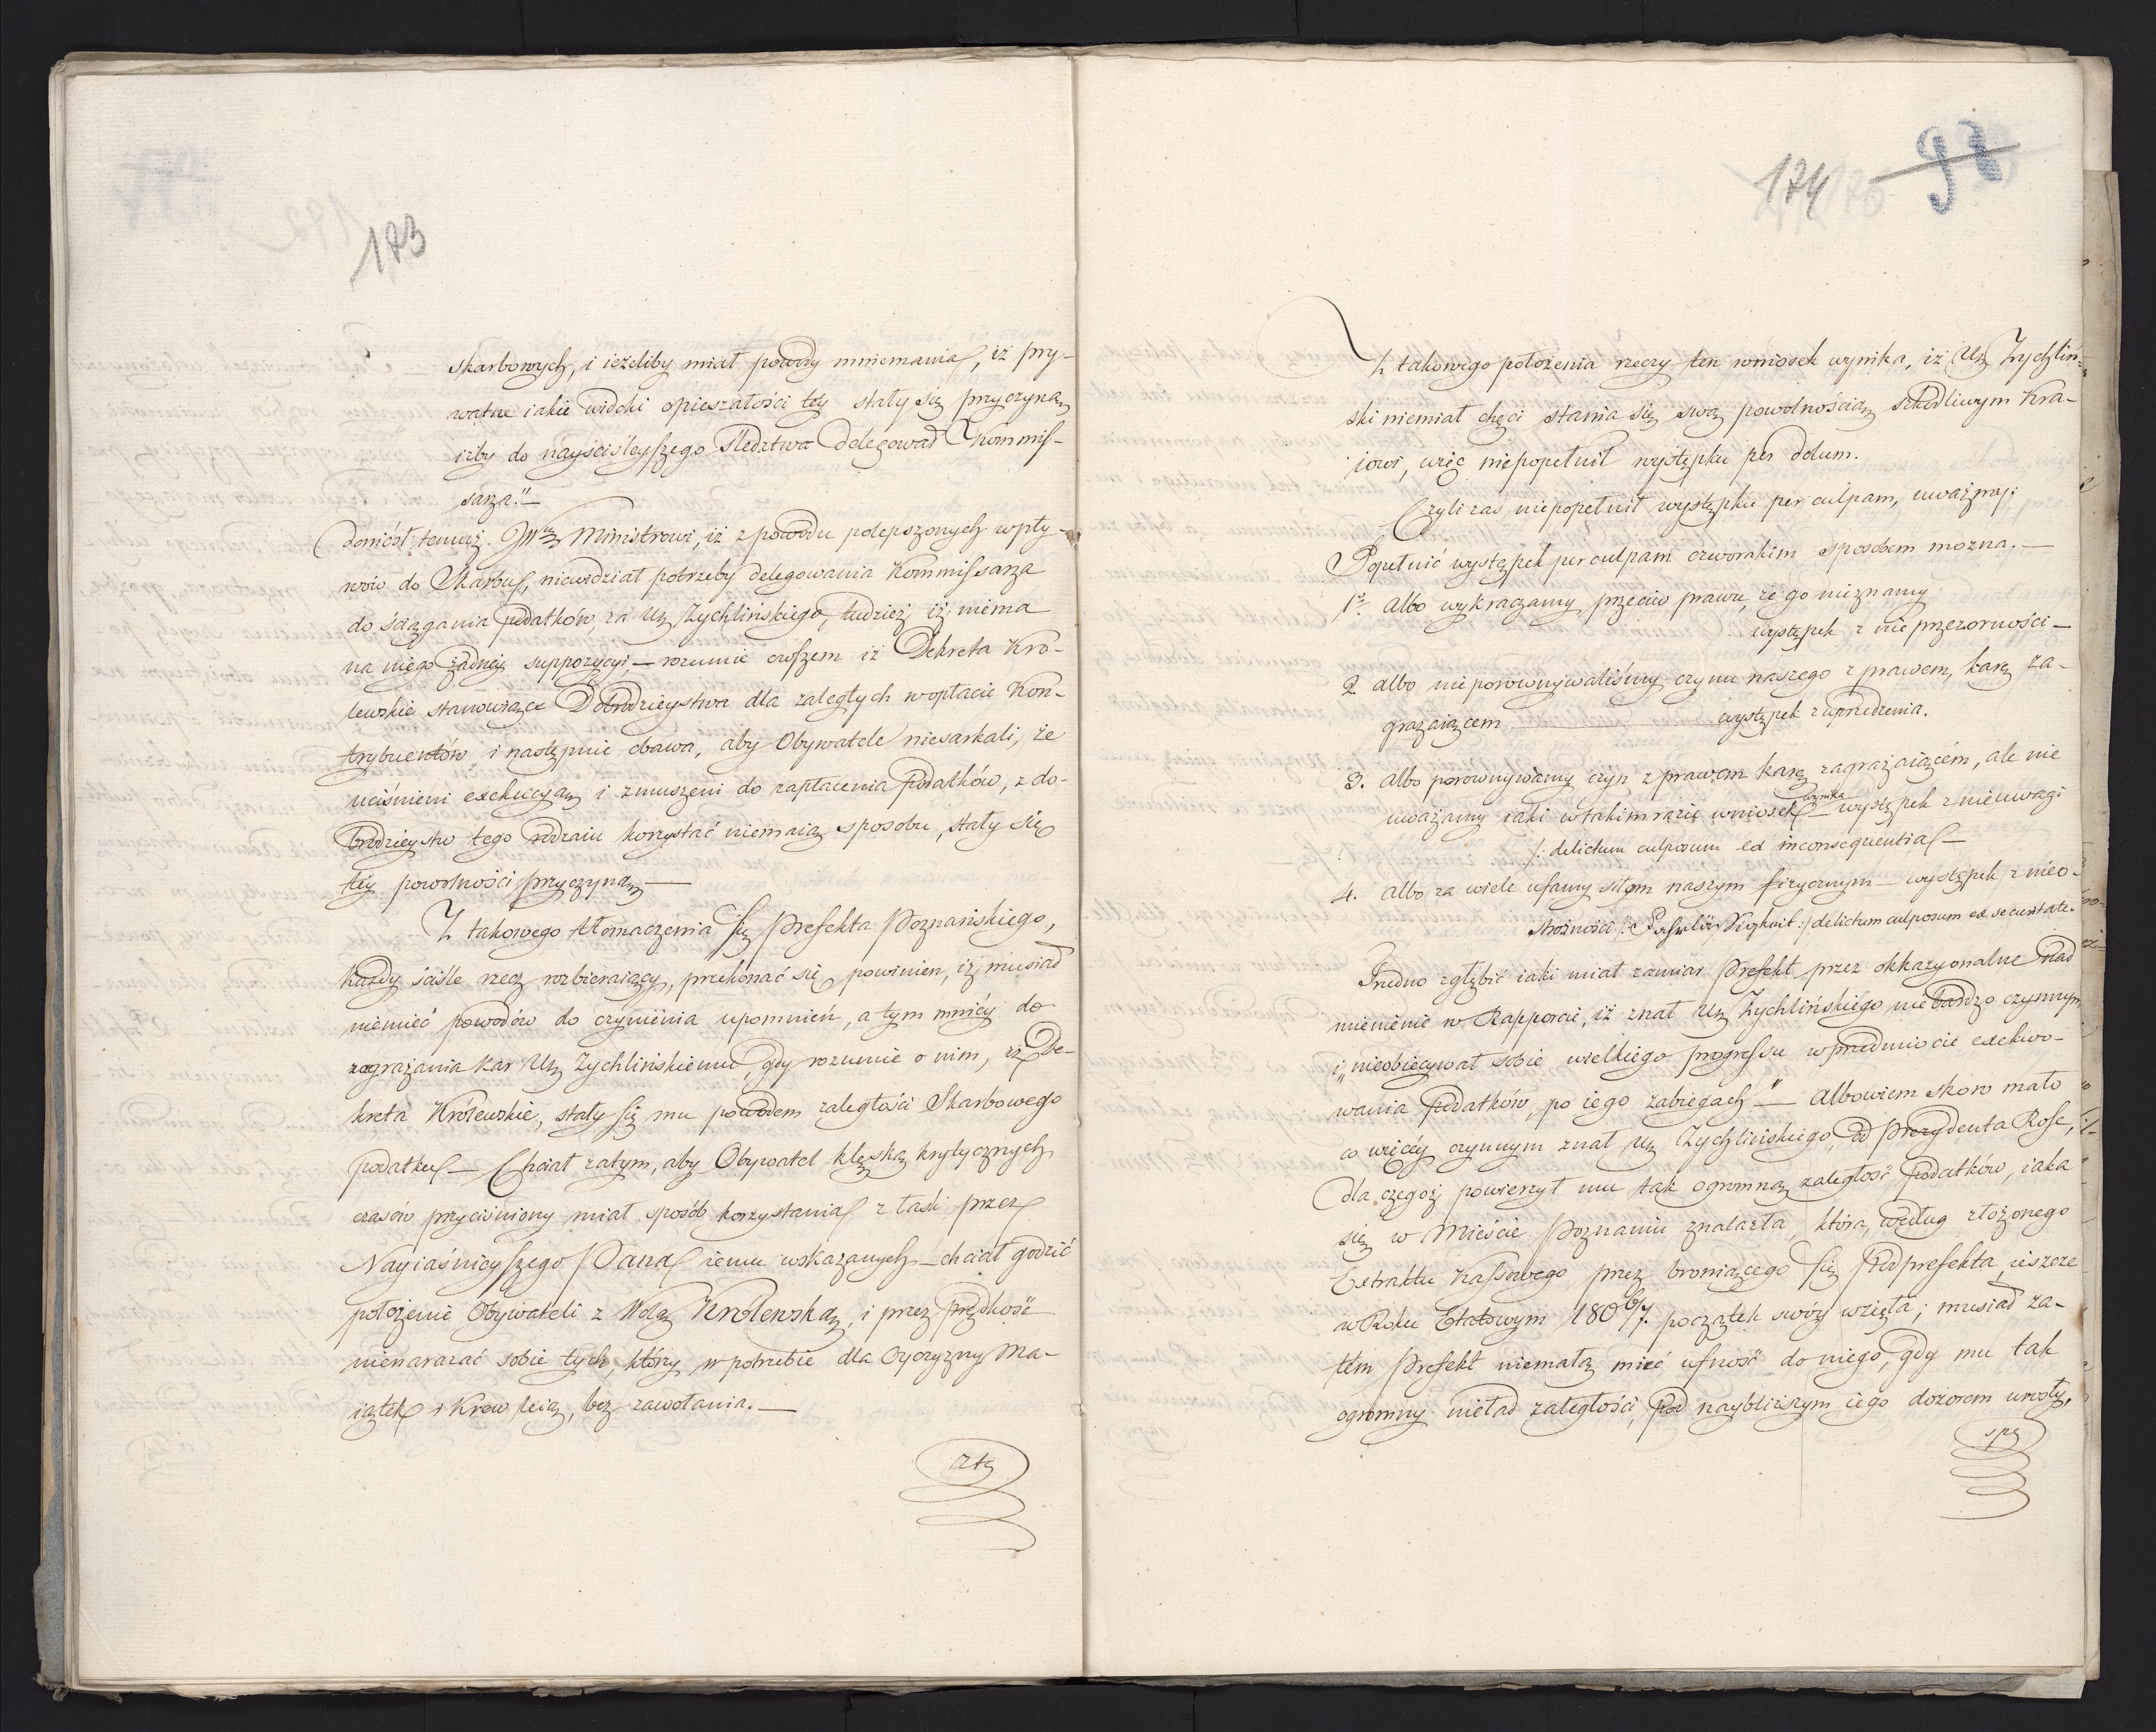 173
skarbowych, i ieżeliby miał powody mniemania, iż pry-
watne iakie widoki opieszałości tey stały się przyczyną,
iżby do nayściśleyszego Śledztwa delegował Kommis-
sarza."—
doniósł temuż JW Ministrowi, iż z powodu polepszonych wpły-
wów do Skarbu, niewidział potrzeby delegowania Kommissarza
do ściągania podatków, za Ur Zychlińskiego, tudzież iż niema
na niego żadnéy suppozycyi, — rozumie owszem iż Dekreta Kro-
lewskie stanowiące Dobrodzieystwa dla zaległych w opłacie Kon-
trybuentów, i następnie obawa, aby Obywatele niesarkali, że
uciśnieni exekucyą i zmuszeni do zapłacenia podatków, z do-
brodzieystw tego rodzaiu korzystać niemaią sposobu, stały się
téy powolności przyczyną.—
Z takowego tłomaczenia się Prefekta Poznańskiego,
każdy ściśle rzecz rozbieraiący, przekonać się powinien, iż musiał
niemieć powodów do czynienia upomnień, a tym mniéy do
zagrażania kar Ur Zychlińskiemu, gdy rozumie o nim, iż De-
kreta Królewskie, stały się mu powodem zaległości Skarbowego
podatku — Chciał zatym, aby Obywatel klęską krytycznych
czasów przyciśniony miał sposób korzystania z łaski przez
Nayiaśnieyszego Pana iemu wskazanych — chciał godzić
położenie Obywateli z Wolą Krolewską, i przez prędkość
nienarazać sobie tych, którzy w potrzebie dla Oyczyzny Ma-
iątek i Krew leią, bez zawołania.—
ztą
174
98
Z takowego położenia rzeczy ten wniosek wynika, iż Ur Zychliń-
ski niemiał chęci stania się swą powolnością szkodliwym Kra-
iowi, więc niepopełnił występku per dolum.
Czyli zaś niepopełnił występku per culpam, uważmy:
Popełnić występek per culpam czworakim sposobem można.—
1o. albo wykraczamy przeciw prawu, że go nieznamy
występek z nieprzezorności —
2 albo nieporownywaliśmy czynu naszego z prawem, karą za-
grażaiącem — występek z uprzedzenia.
3. albo porownywamy czyn z prawem karą zagrażaiącém, ale nie
uważamy iaki w takim razie wniosek wynika — występek z nieuwagi
/: delictum culposum ex inconsequentia —
4. albo za wiele ufamy siłom naszym fizycznym — występek z nieo-
strożności /: Fahrlässigkeit :/ delictum culposum ex securitate.
Trudno zgłębić iaki miał zamiar Prefekt przez okkazyonalne nad
mienienie w Rapporcie, iż znał Ur Zychlińskiego niebardzo czynnym
i „nieobiecywał sobie wielkiego progressu w przedmiocie exekwo-
wania podatków, po iego zabiegach" — Albowiem skoro mało
co więcéy czynnym znał Ur Zychlińskiego, od Prezydenta Rose,
dla czegoż powierzył mu tak ogromną zaległość podatków, iaka
się w Mieście Poznaniu znalazła, która, według złożonego
Extraktu Kassowego przez broniącego się Podprefekta ieszcze
w Roku Etatowym 1806/7. początek swóy wzięła; musiał za-
tém Prefekt niemałą mieć ufność do niego, gdy mu tak
ogromny nieład zaległości, pod naybliższym iego dozorem urosły,
spę